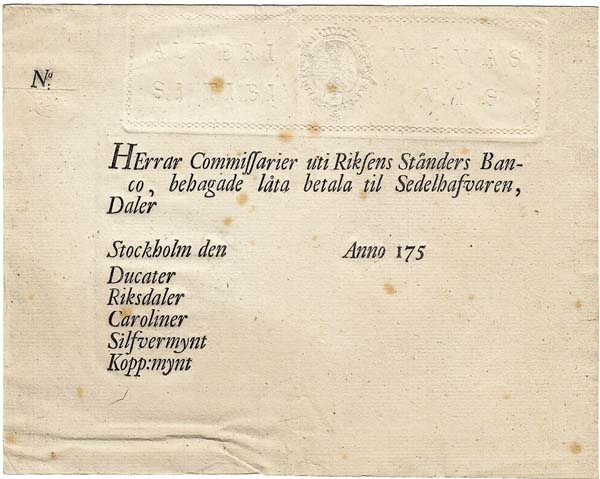 ALTERI VIVAS
SI TIBI VIS
No.
HErrar Commiſſarier uti Rikſens Ständers Ban-
co, behagade låta betala til Sedelhafvaren,
Daler
Stockholm den Anno 175
Ducater
Riksdaler
Caroliner
Silfvermynt
Kopp:mynt